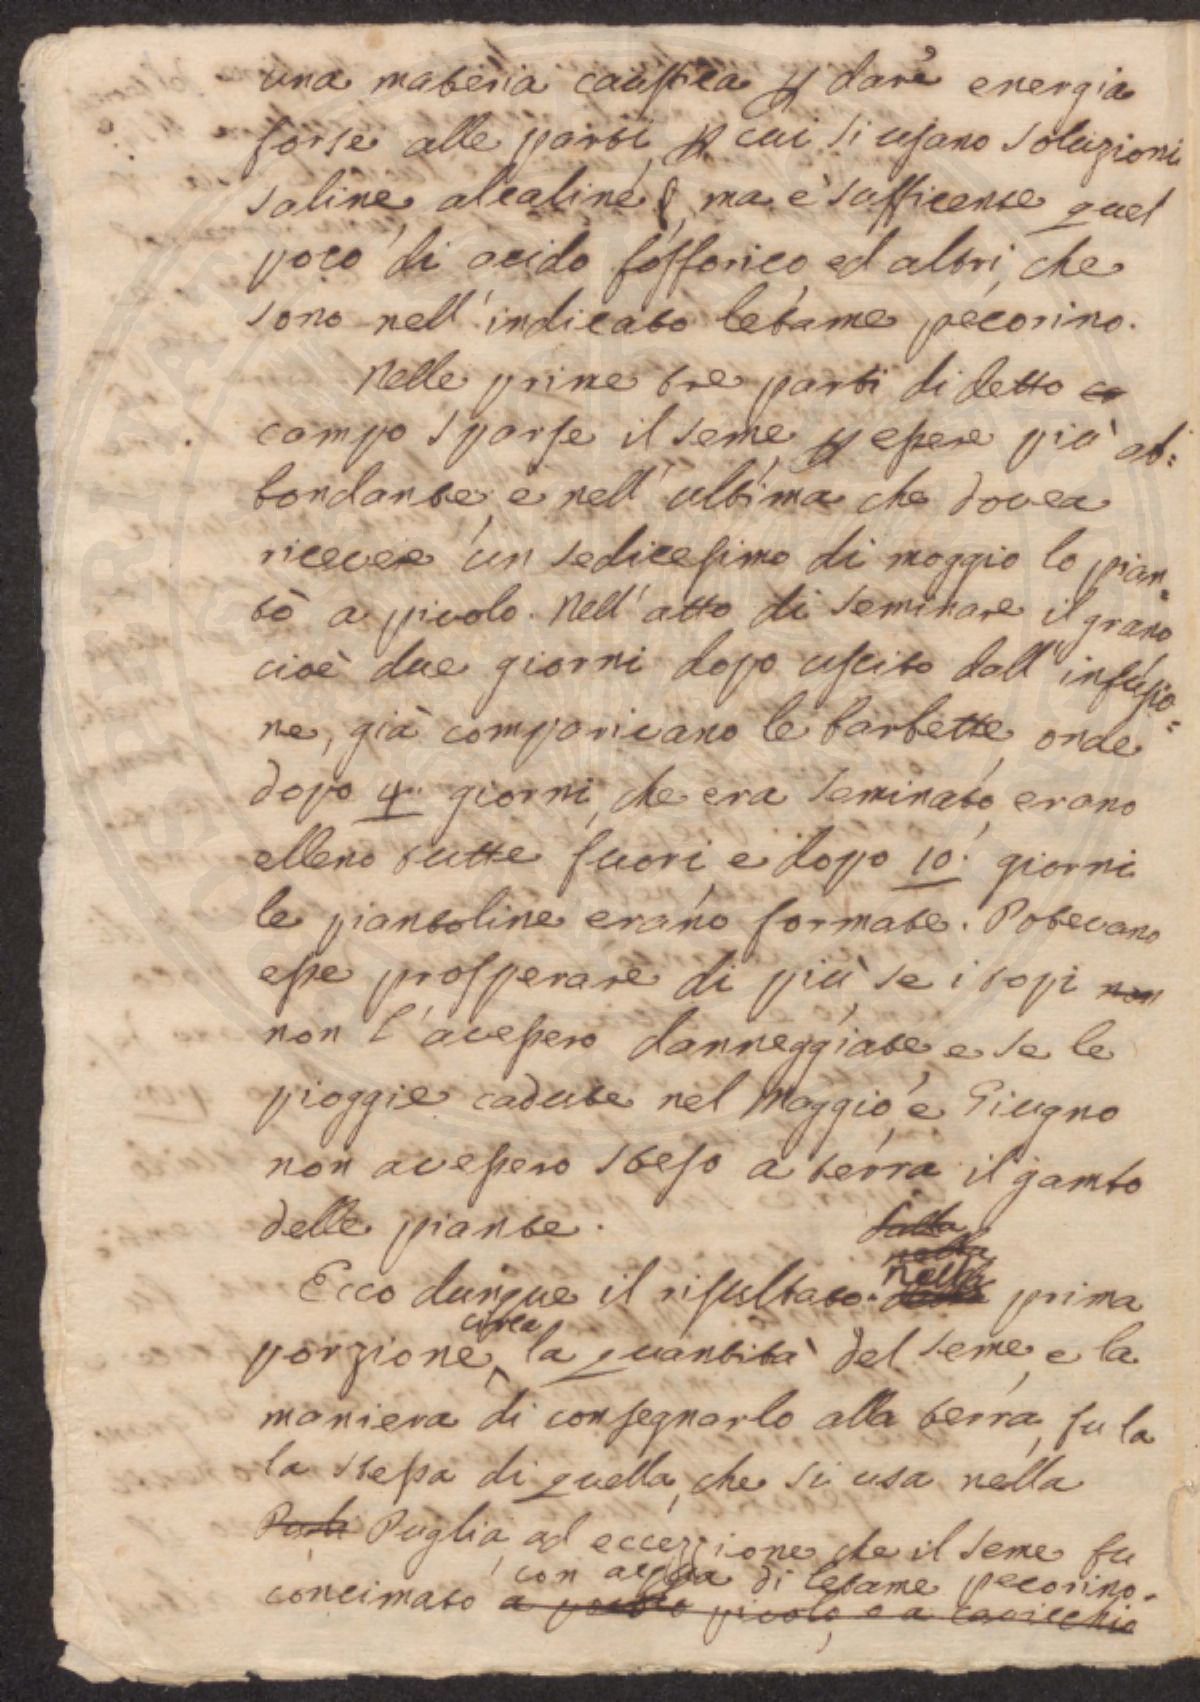 una materia caustica p dare energia
forse alle parti, p cui si usano soluzioni
saline, alcaline &, ma è sufficente quel
poco di acido fosforico, ed altri, che
sono nell' indicato letame pecorino.
Nelle prime tre parti di detto ca
campo sparse il seme, p essere più ab=
bondante, e nell' ultima che dovea
ricevere un sedicesimo di moggio lo pian=
tò a picolo. Nell' atto di seminare il grano
cioè due giorni dopo uscito dall' infusio=
ne, già comparivano le barbette, onde
dopo 4. giorni, che era seminato, erano
elleno tutte fuori e dopo 10. giorni
le piantoline erano formate. Potevano
esse prosperare di più, se i topi non
non l' avessero danneggiate, e se le
pioggie cadute nel Maggio, e Giugno
non avessero steso a terra il gambo
delle piante.
Ecco dunque il risultato. nella prima
porzione circa la quantità del seme, e la
maniera di consegnarlo alla terra, fu la
la stessa di quella, che si usa nella
Puglia ad eccezzione che il seme fu
con acqua di letame pecorino.
concimato a picolo, o a cavicchio